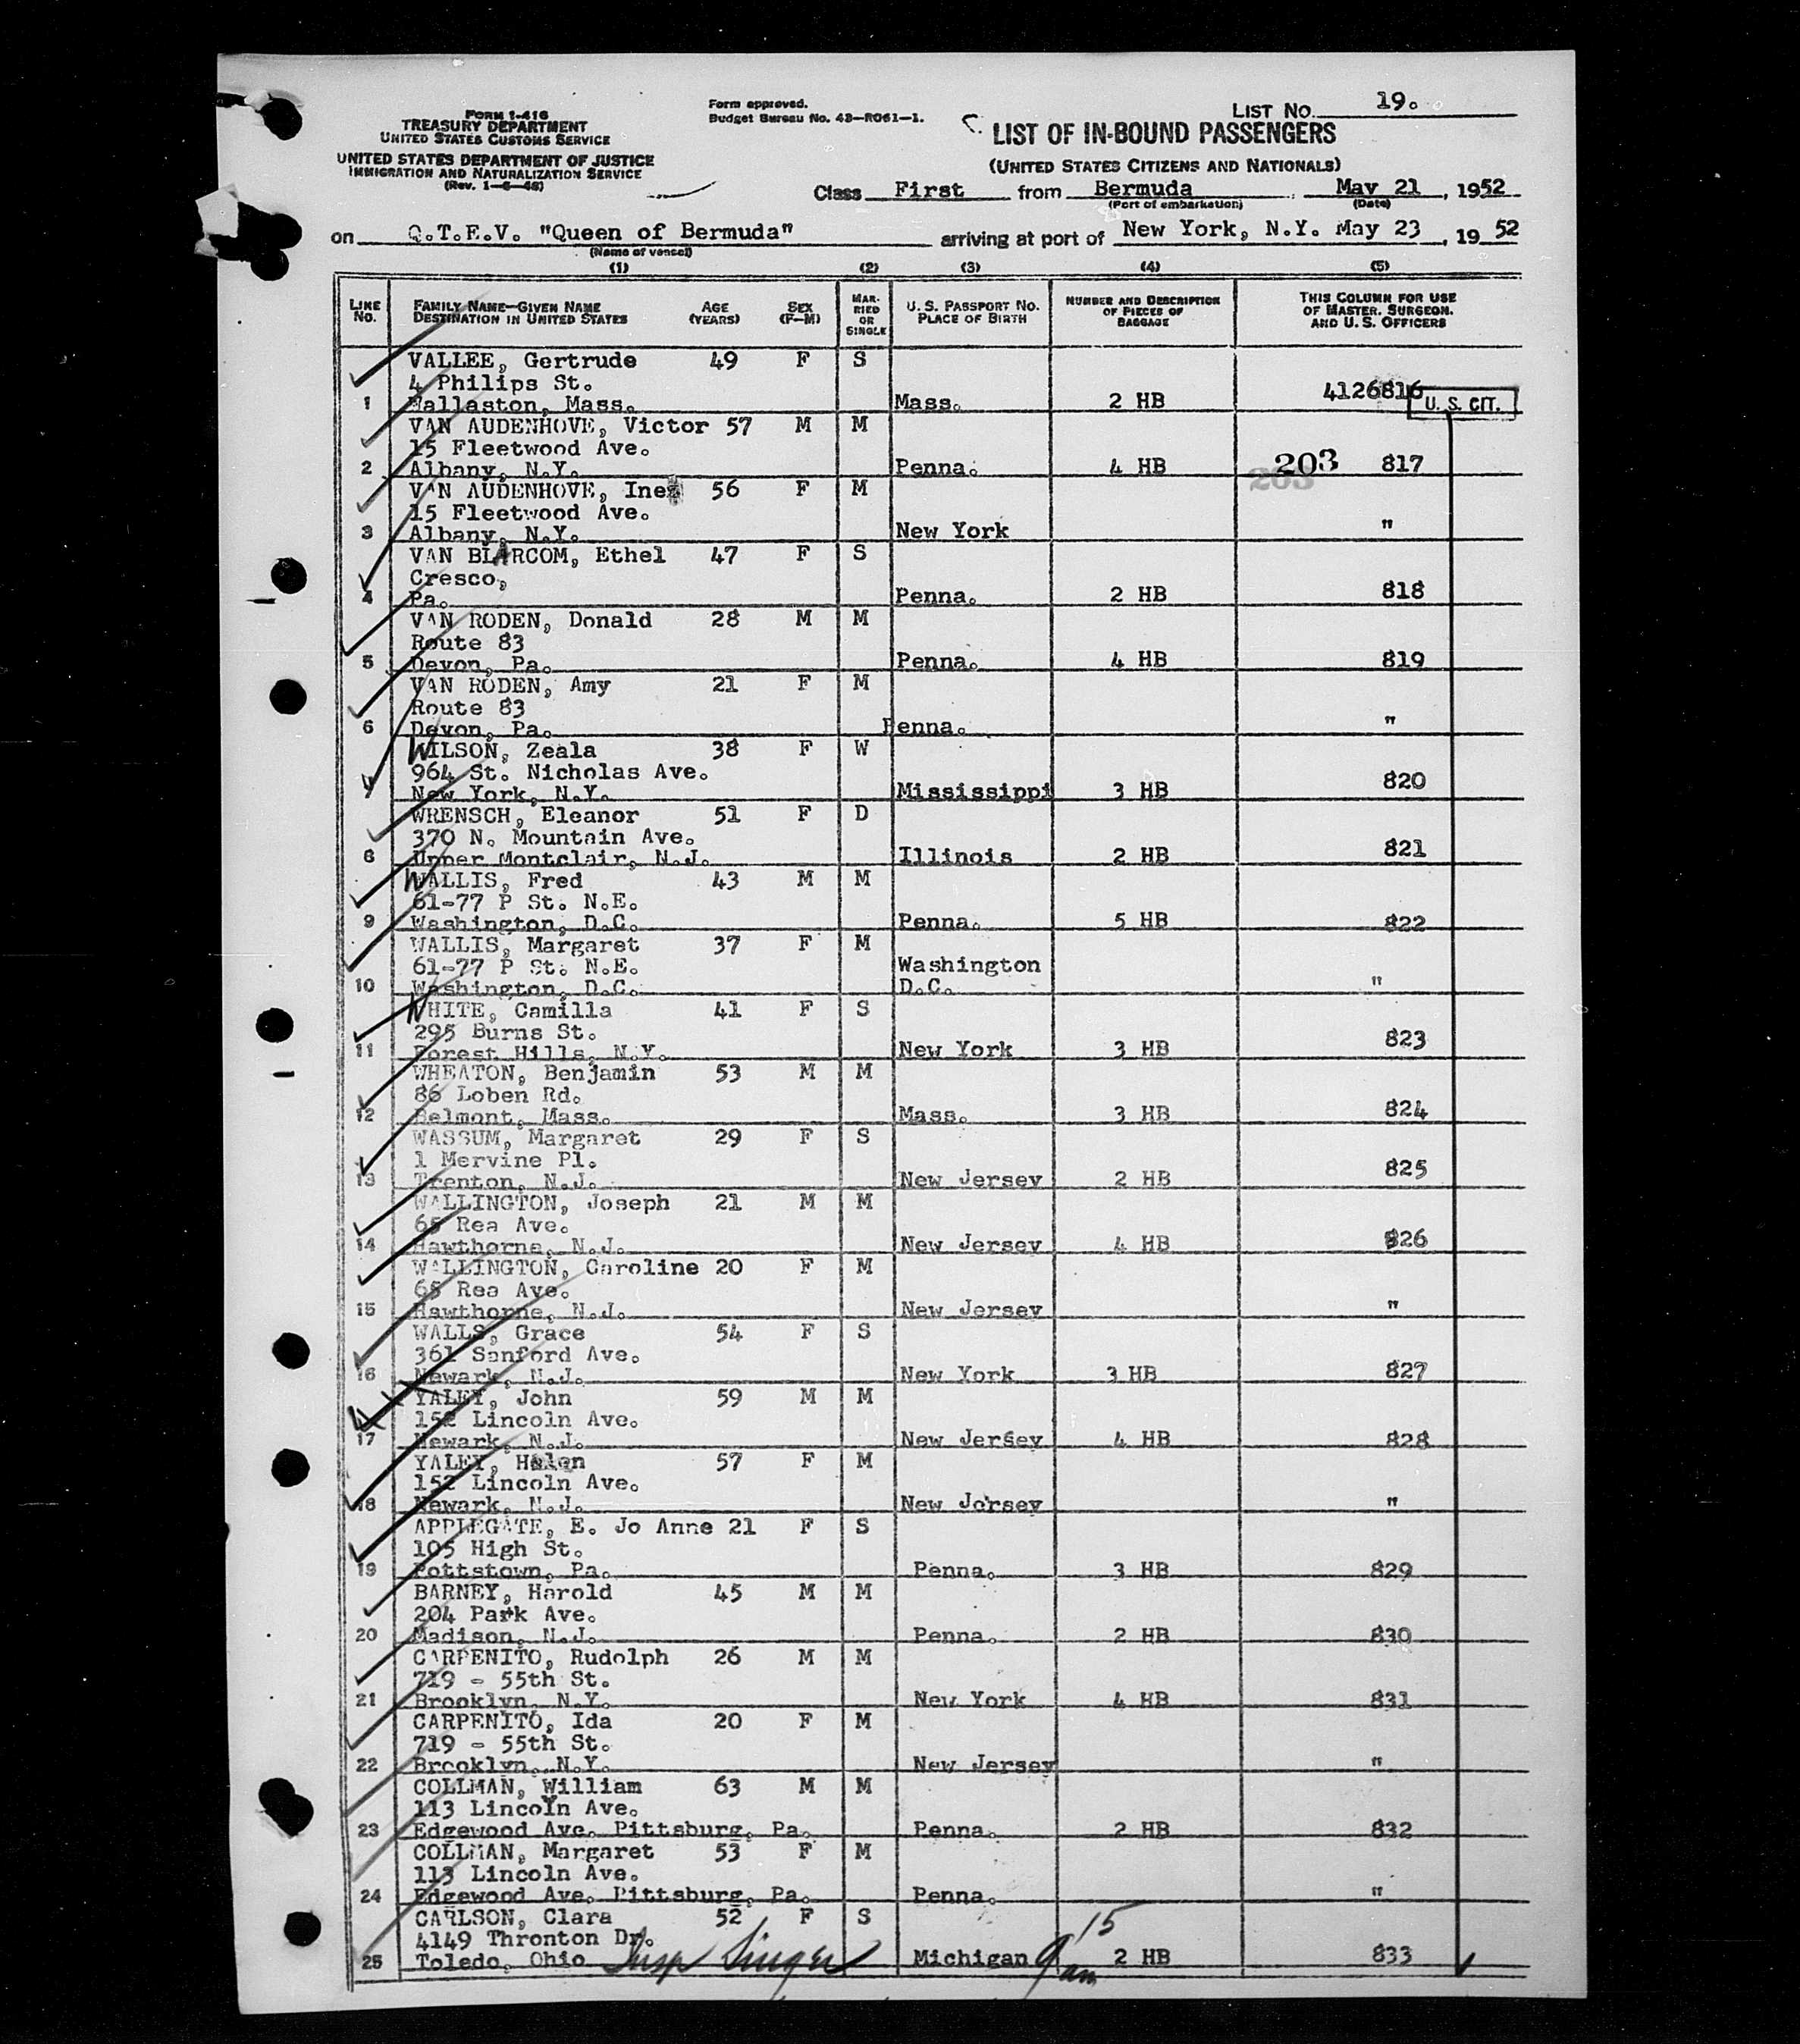 FORM I-416
TREASURY DEPARTMENT
UNITED STATES CUSTOMS SERVICE
UNITED STATES DEPARTMENT OF JUSTICE
IMMIGRATION AND NATURALIZATION SERVICE
(Rev. 1-6-48)
Form approved.
Budget Bureau No. 43-R061-1.
LIST NO. 19.
LIST OF IN-BOUND PASSENGERS
(UNITED STATES CITIZENS AND NATIONALS)
Class First from Bermuda May 21, 1952
(Port of embarkation) (Date)
on Q.T.E.V. "Queen of Bermuda" arriving at port of New York, N.Y. May 23, 1952
(Name of vessel)
(1) (2) (3) (4) (5)
LINE NO. FAMILY NAME—GIVEN NAME DESTINATION IN UNITED STATES AGE (YEARS) SEX (F—M) MARRIED OR SINGLE U. S. PASSPORT NO. PLACE OF BIRTH NUMBER AND DESCRIPTION OF PIECES OF BAGGAGE THIS COLUMN FOR USE OF MASTER, SURGEON, AND U. S. OFFICERS
VALLEE, Gertrude 49 F S
4 Philips St.
1 Wallaston, Mass. Mass. 2 HB 4126816 U. S. CIT.
VAN AUDENHOVE, Victor 57 M M
15 Fleetwood Ave.
2 Albany, N.Y. Penna. 4 HB 203 817
VAN AUDENHOVE, Inez 56 F M
15 Fleetwood Ave.
3 Albany, N.Y. New York "
VAN BLARCOM, Ethel 47 F S
Cresco,
4 Pa. Penna. 2 HB 818
VAN RODEN, Donald 28 M M
Route 83
5 Devon, Pa. Penna. 4 HB 819
VAN RODEN, Amy 21 F M
Route 83
6 Devon, Pa. Penna. "
WILSON, Zeala 38 F W
964 St. Nicholas Ave.
7 New York, N.Y. Mississippi 3 HB 820
WRENSCH, Eleanor 51 F D
370 N. Mountain Ave.
8 Upper Montclair, N.J. Illinois 2 HB 821
WALLIS, Fred 43 M M
61-77 P St. N.E.
9 Washington, D.C. Penna. 5 HB 822
WALLIS, Margaret 37 F M
61-77 P St. N.E. Washington
10 Washington, D.C. D.C. "
WHITE, Camilla 41 F S
295 Burns St.
11 Forest Hills, N.Y. New York 3 HB 823
WHEATON, Benjamin 53 M M
86 Loben Rd.
12 Belmont, Mass. Mass. 3 HB 824
WASSUM, Margaret 29 F S
1 Mervine Pl.
13 Trenton, N.J. New Jersey 2 HB 825
WALLINGTON, Joseph 21 M M
65 Rea Ave.
14 Hawthorne, N.J. New Jersey 4 HB 826
WALLINGTON, Caroline 20 F M
65 Rea Ave.
15 Hawthorne, N.J. New Jersey "
WALLS, Grace 54 F S
361 Sanford Ave.
16 Newark, N.J. New York 3 HB 827
YALEY, John 59 M M
152 Lincoln Ave.
17 Newark, N.J. New Jersey 4 HB 828
YALEY, Helen 57 F M
152 Lincoln Ave.
18 Newark, N.J. New Jersey "
APPLEGATE, E. Jo Anne 21 F S
105 High St.
19 Pottstown, Pa. Penna. 3 HB 829
BARNEY, Harold 45 M M
204 Park Ave.
20 Madison, N.J. Penna. 2 HB 830
CARPENITO, Rudolph 26 M M
719 - 55th St.
21 Brooklyn, N.Y. New York 4 HB 831
CARPENITO, Ida 20 F M
719 - 55th St.
22 Brooklyn, N.Y. New Jersey "
COLLMAN, William 63 M M
113 Lincoln Ave.
23 Edgewood Ave. Pittsburg, Pa. Penna. 2 HB 832
COLLMAN, Margaret 53 F M
113 Lincoln Ave.
24 Edgewood Ave. Pittsburg, Pa. Penna. "
CARLSON, Clara 52 F S
4149 Thronton Dr.
25 Toledo, Ohio Insp Singer Michigan 9 15 am 2 HB 833